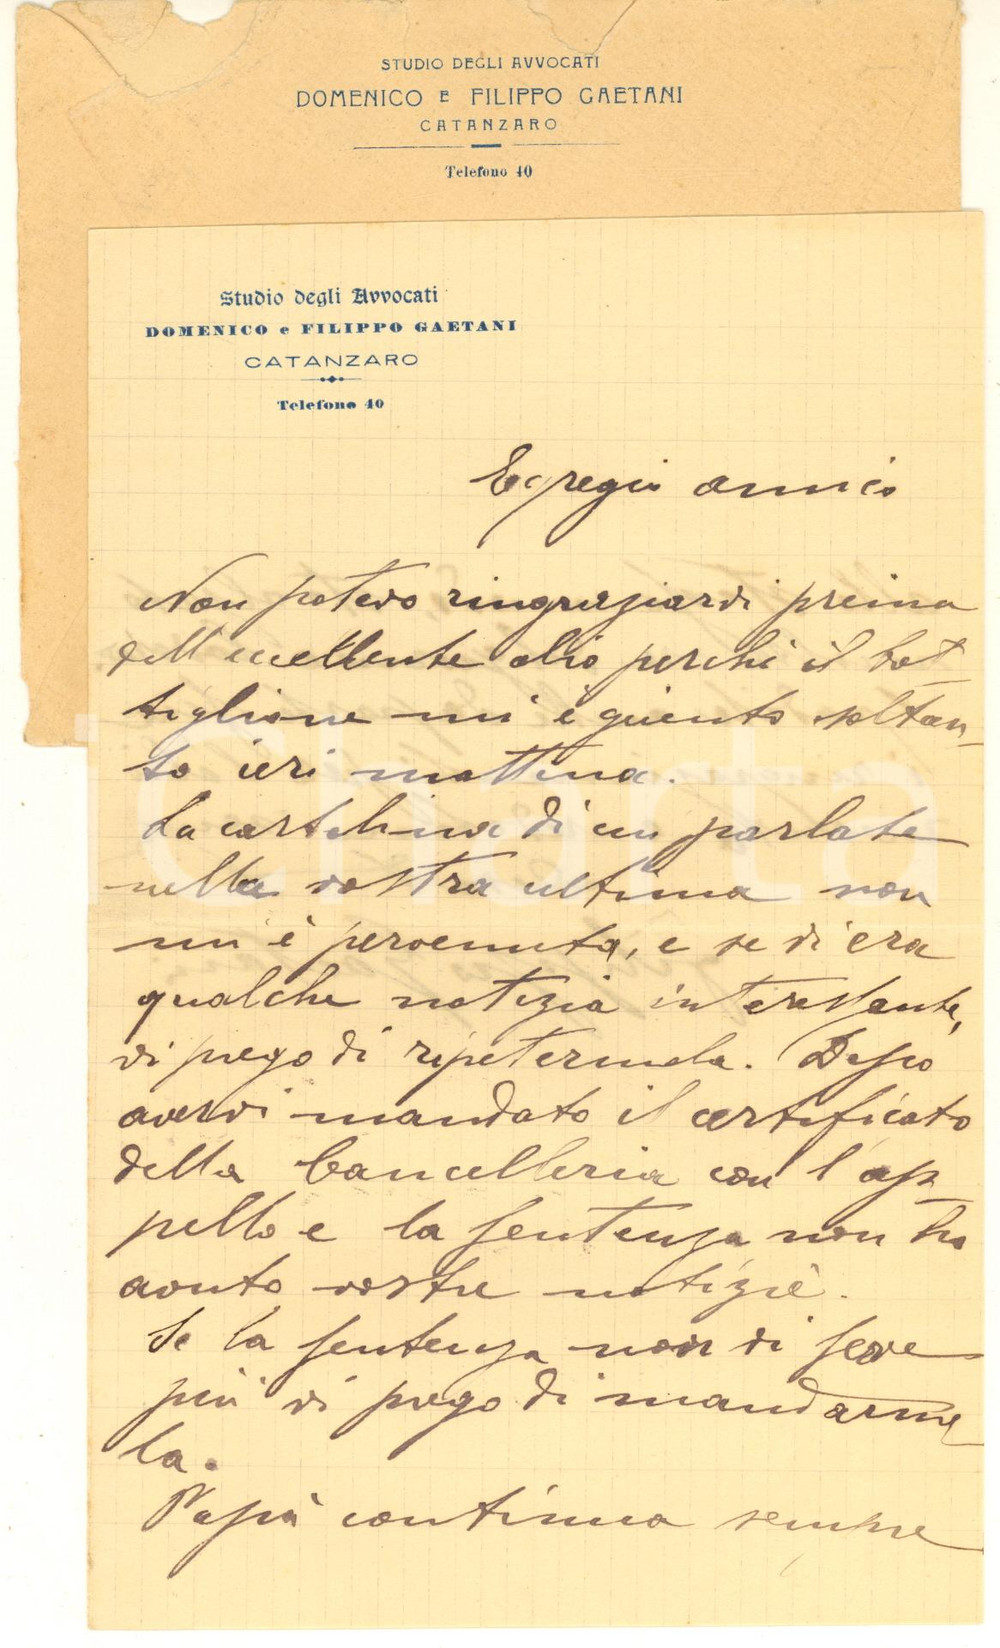 STUDIO DEGLI AVVOCATI
DOMENICO E FILIPPO GAETANI
CATANZARO
Telefono 40
Studio degli Avvocati
DOMENICO e FILIPPO GAETANI
CATANZARO
Telefono 40
Egregio amico
Non potevo ringraziarvi prima
dell'eccellente olio perchè il bot
tiglione mi è giunto soltan-
to ieri mattina.
La cartolina di cui parlate
nella vostra ultima non
mi è pervenuta, e se vi era
qualche notizia interessante,
vi prego di ripetermela. Dopo
avervi mandato il certificato
della Cancelleria con l'ap
pello e la sentenza non ho
avuto vostre notizie.
Se la sentenza non vi serve
più vi prego di mandarme
la.
Papà continua sempre